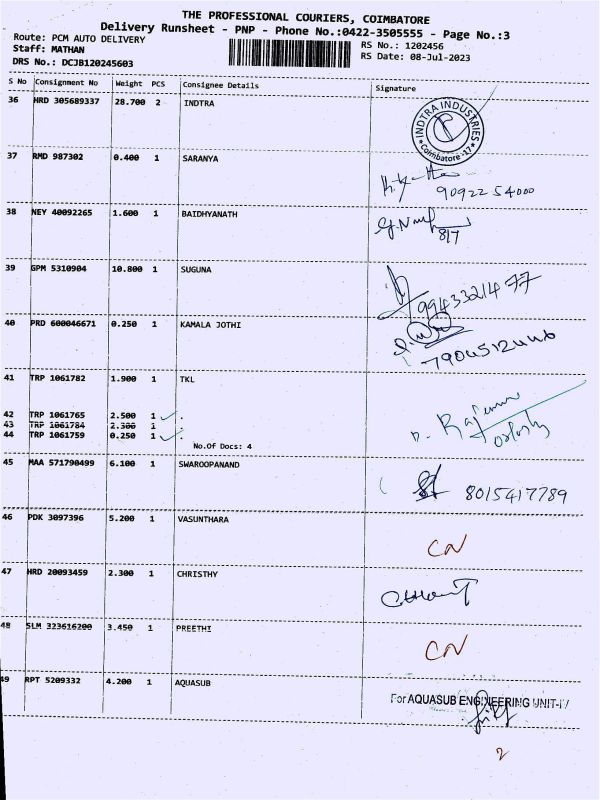 THE PROFESSIONAL COURIERS, COIMBATORE
Delivery Runsheet - PNP - Phone No.:0422-3505555 - Page No.:3
Route: PCM AUTO DELIVERY
RS No.: 1202456
Staff: MATHAN
RS Date: 08-Jul-2023
DRS No.: DCJB120245603
S No Consignment No Weight PCS Consignee Details Signature
36 HRD 305689337 28.700 2 INDTRA
INDTRA INDUSTRIES
* Coimbatore-17 *
37 RMD 987302 0.400 1 SARANYA
90922 54000
38 NEY 40092265 1.600 1 BAIDHYANATH
8/7
39 GPM 5310904 10.800 1 SUGUNA
9943321477
40 PRD 600046671 0.250 1 KAMALA JOTHI
7904512446
41 TRP 1061782 1.900 1 TKL
42 TRP 1061765 2.500 1
43 TRP 1061784 2.300 1
44 TRP 1061759 0.250 1
No.Of Docs: 4
45 MAA 571790499 6.100 1 SWAROOPANAND
8015417789
46 PDK 3097396 5.200 1 VASUNTHARA
CN
47 HRD 20093459 2.300 1 CHRISTHY
48 SLM 323616200 3.450 1 PREETHI
CN
49 RPT 5209332 4.200 1 AQUASUB
For AQUASUB ENGINEERING UNIT-IV
2